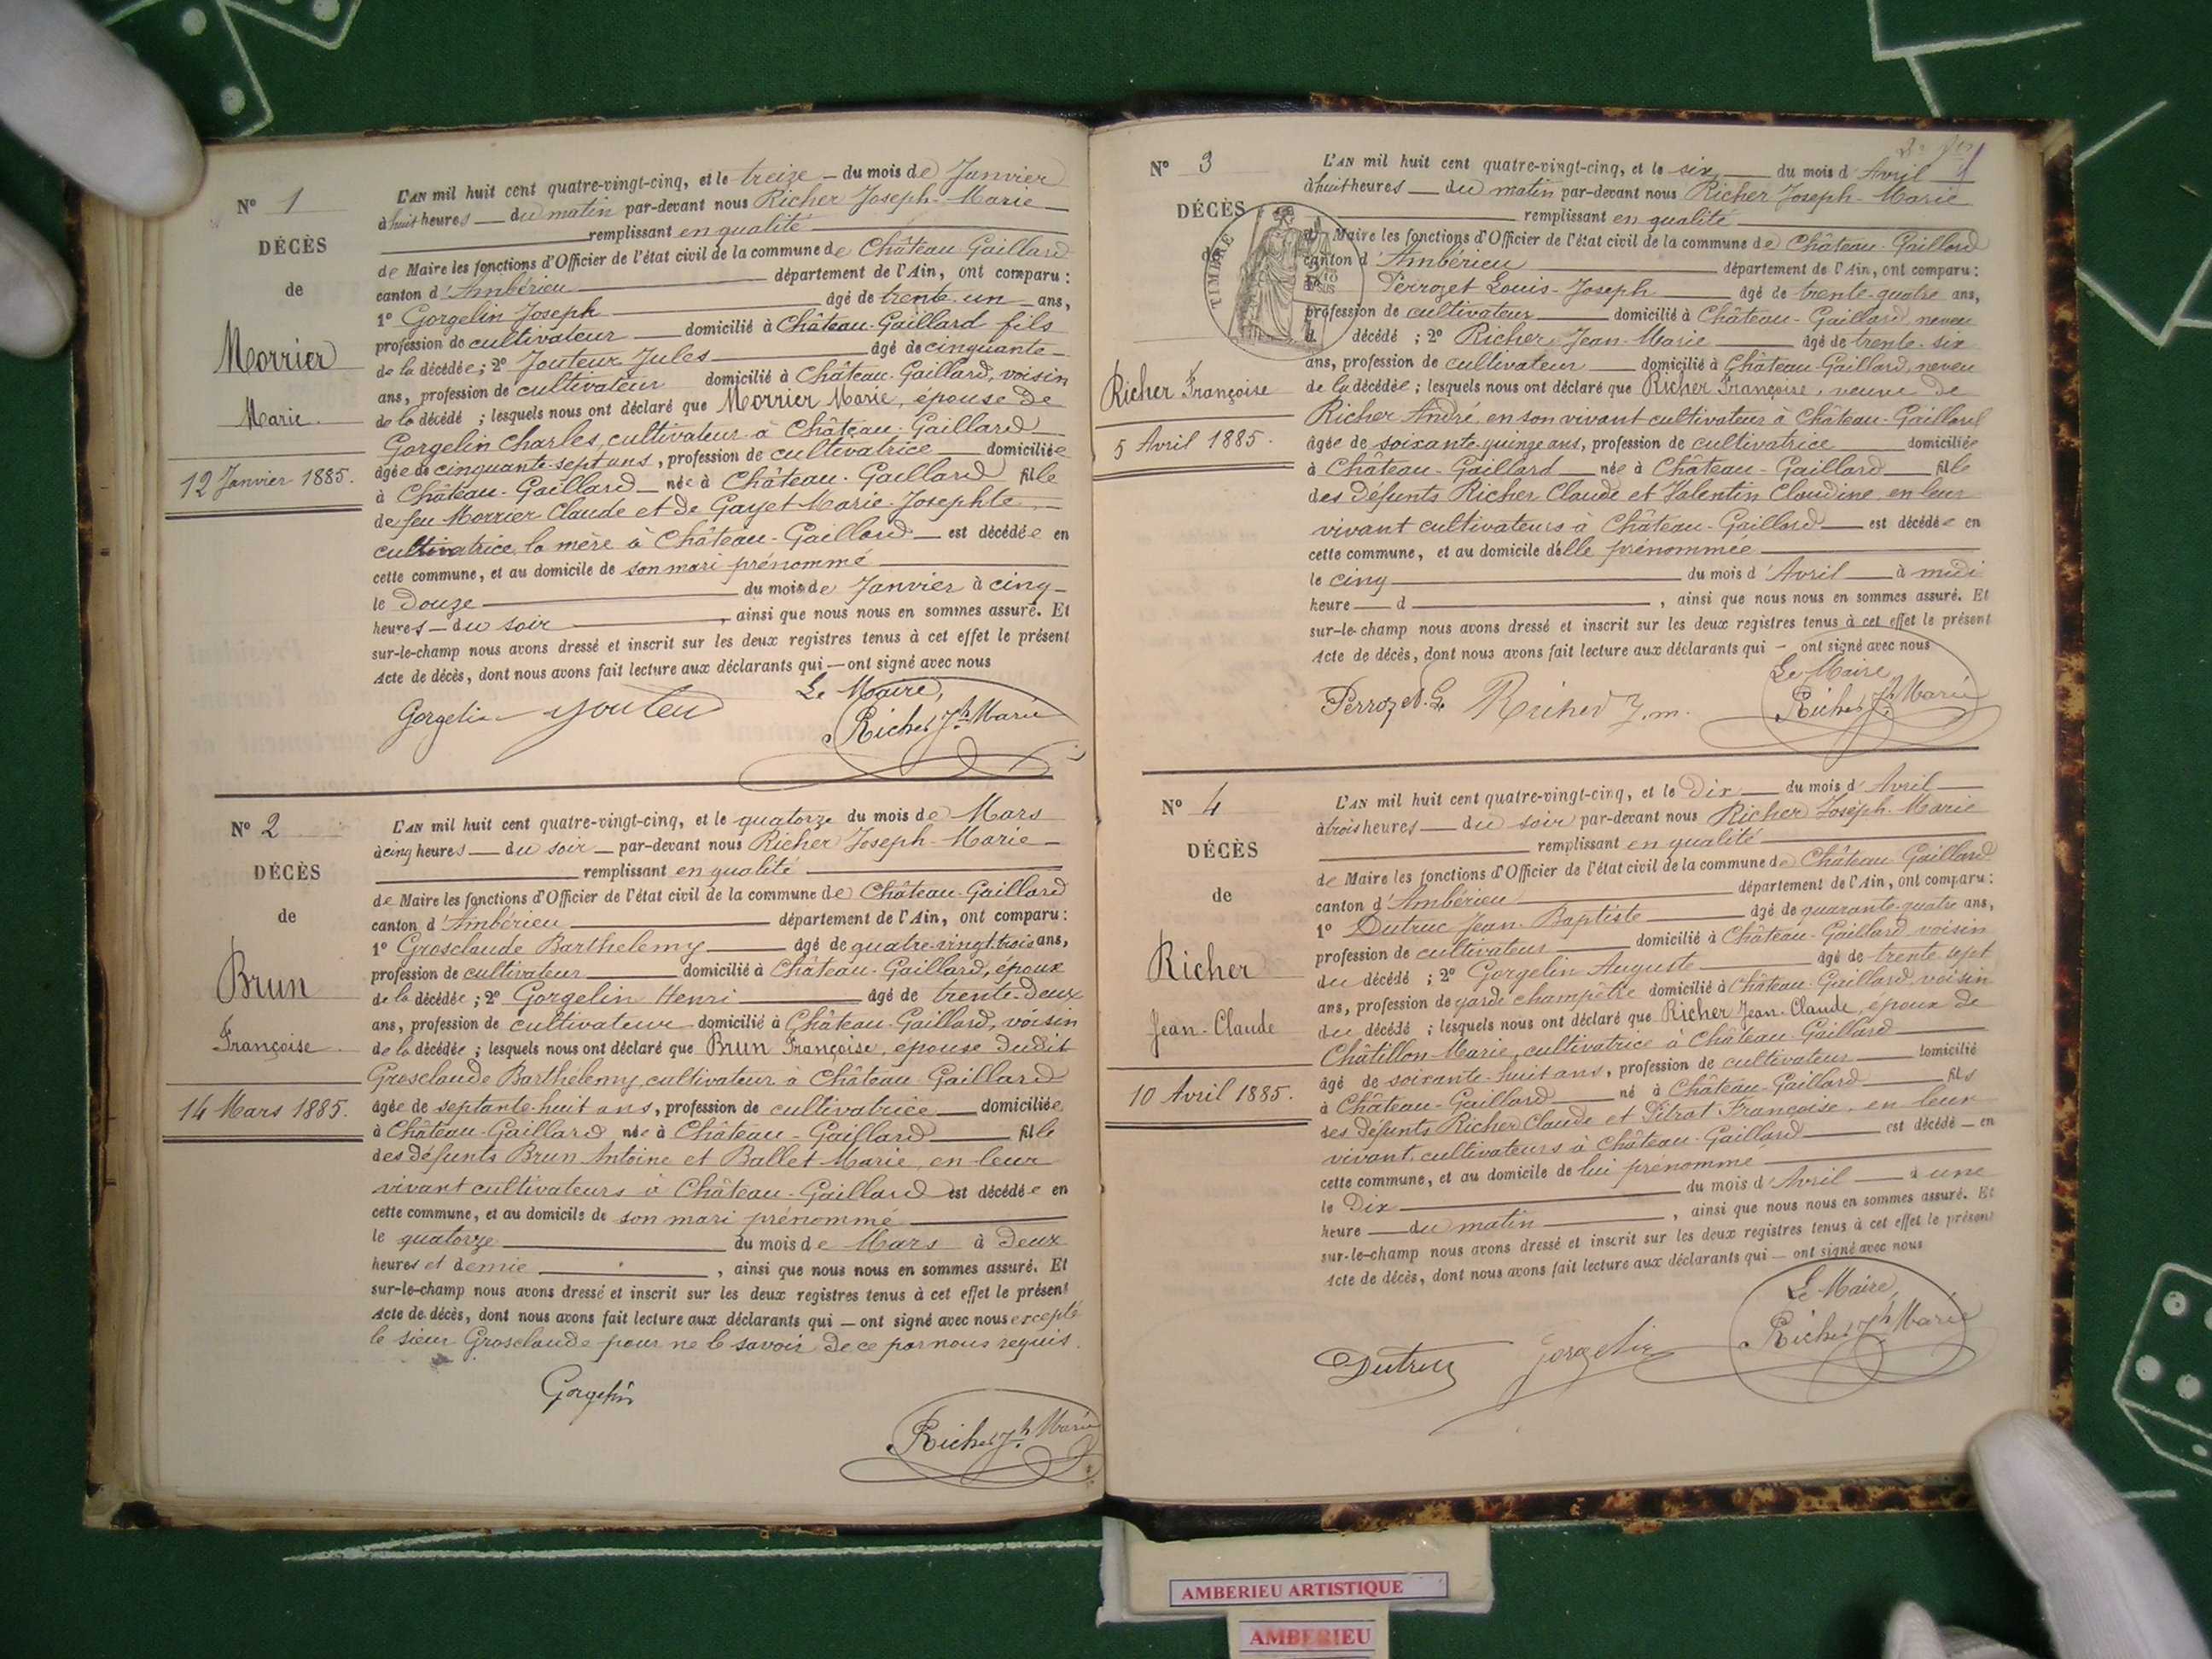 N° 1
DÉCÈS
de
Morrier
Marie.
12 Janvier 1885.
L'AN mil huit cent quatre-vingt-cinq, et le treize — du mois de Janvier
à huit heures — du matin par-devant nous Richer Joseph-Marie —
remplissant en qualité
de Maire les fonctions d'Officier de l'état civil de la commune de Château-Gaillard
canton d'Ambérieu département de l'Ain, ont comparu :
1° Gorgelin Joseph âgé de trente-un ans,
profession de cultivateur domicilié à Château-Gaillard fils
de la décédée ; 2° Jouteur Jules âgé de cinquante-
ans, profession de cultivateur domicilié à Château-Gaillard, voisin
de la décédé ; lesquels nous ont déclaré que Morrier Marie, épouse de
Gorgelin Charles, cultivateur à Château-Gaillard
âgée de cinquante-sept ans, profession de cultivatrice domiciliée
à Château-Gaillard née à Château-Gaillard fille
de feu Morrier Claude et de Gayet Marie-Josephte
cultivatrice, la mère à Château-Gaillard est décédée en
cette commune, et au domicile de son mari prénommé
le Douze du mois de Janvier à cinq
heures — du soir , ainsi que nous nous en sommes assuré. Et
sur-le-champ nous avons dressé et inscrit sur les deux registres tenus à cet effet le présent
Acte de décès, dont nous avons fait lecture aux déclarants qui — ont signé avec nous
Le Maire,
Gorgelin Jouteur Richer Jh Marie
N° 2
DÉCÈS
de
Brun
Françoise.
14 Mars 1885.
L'AN mil huit cent quatre-vingt-cinq, et le quatorze du mois de Mars
à cinq heures — du soir — par-devant nous Richer Joseph-Marie —
remplissant en qualité
de Maire les fonctions d'Officier de l'état civil de la commune de Château-Gaillard
canton d'Ambérieu département de l'Ain, ont comparu :
1° Grosclaude Barthelemy âgé de quatre-vingt-trois ans,
profession de cultivateur domicilié à Château-Gaillard, époux
de la décédée ; 2° Gorgelin Henri âgé de trente-deux
ans, profession de cultivateur domicilié à Château-Gaillard, voisin
de la décédée ; lesquels nous ont déclaré que Brun Françoise, épouse dudit
Grosclaude Barthélemy, cultivateur à Château Gaillard
âgée de septante-huit ans, profession de cultivatrice domiciliée
à Château-Gaillard née à Château-Gaillard fille
des défunts Brun Antoine et Ballet Marie, en leur
vivant cultivateurs à Château-Gaillard est décédée en
cette commune, et au domicile de son mari prénommé
le quatorze du mois de Mars à deux
heures et demie , ainsi que nous nous en sommes assuré. Et
sur-le-champ nous avons dressé et inscrit sur les deux registres tenus à cet effet le présent
Acte de décès, dont nous avons fait lecture aux déclarants qui — ont signé avec nous excepté
le sieur Grosclaude pour ne le savoir de ce par nous requis.
Gorgelin
Richer Jh Marie
N° 3
DÉCÈS
TIMBRE
Richer Françoise
5 Avril 1885.
L'AN mil huit cent quatre-vingt-cinq, et le six du mois d'Avril
à huit heures — du matin par-devant nous Richer Joseph-Marie
remplissant en qualité
de Maire les fonctions d'Officier de l'état civil de la commune de Château-Gaillard
canton d'Ambérieu département de l'Ain, ont comparu :
Perrozet Louis-Joseph âgé de trente-quatre ans,
profession de cultivateur domicilié à Château-Gaillard, neveu
d décédé ; 2° Richer Jean-Marie âgé de trente-six
ans, profession de cultivateur domicilié à Château-Gaillard, neveu
de la décédée ; lesquels nous ont déclaré que Richer Françoise, veuve de
Richer André, en son vivant cultivateur à Château-Gaillard
âgée de soixante-quinze ans, profession de cultivatrice domiciliée
à Château-Gaillard née à Château-Gaillard fille
des défunts Richer Claude et Valentin Claudine, en leur
vivant cultivateurs à Château-Gaillard est décédée en
cette commune, et au domicile d'elle prénommée
le cinq du mois d'Avril à midi
heure — d , ainsi que nous nous en sommes assuré. Et
sur-le-champ nous avons dressé et inscrit sur les deux registres tenus à cet effet le présent
Acte de décès, dont nous avons fait lecture aux déclarants qui — ont signé avec nous
Le Maire,
Perrozet L. Richer J.m. Richer Jh Marie
N° 4
DÉCÈS
de
Richer
Jean-Claude
10 Avril 1885.
L'AN mil huit cent quatre-vingt-cinq, et le Dix du mois d'Avril
à trois heures — du soir par-devant nous Richer Joseph-Marie
remplissant en qualité
de Maire les fonctions d'Officier de l'état civil de la commune de Château Gaillard
canton d'Ambérieu département de l'Ain, ont comparu :
1° Dutruc Jean-Baptiste âgé de quarante-quatre ans,
profession de cultivateur domicilié à Château-Gaillard, voisin
du décédé ; 2° Gorgelin Auguste âgé de trente-sept
ans, profession de garde champêtre domicilié à Château-Gaillard, voisin
du décédé ; lesquels nous ont déclaré que Richer Jean-Claude, époux de
Châtillon Marie, cultivatrice à Château-Gaillard
âgé de soixante-huit ans, profession de cultivateur domicilié
à Château-Gaillard né à Château-Gaillard fils
des défunts Richer Claude et Pitrat Françoise, en leur
vivant, cultivateurs à Château-Gaillard est décédé — en
cette commune, et au domicile de lui prénommé
le Dix du mois d'Avril à une
heure — du matin , ainsi que nous nous en sommes assuré. Et
sur-le-champ nous avons dressé et inscrit sur les deux registres tenus à cet effet le présent
Acte de décès, dont nous avons fait lecture aux déclarants qui — ont signé avec nous
Le Maire,
Dutruc Gorgelin Richer Jh Marie
AMBERIEU ARTISTIQUE
AMBERIEU